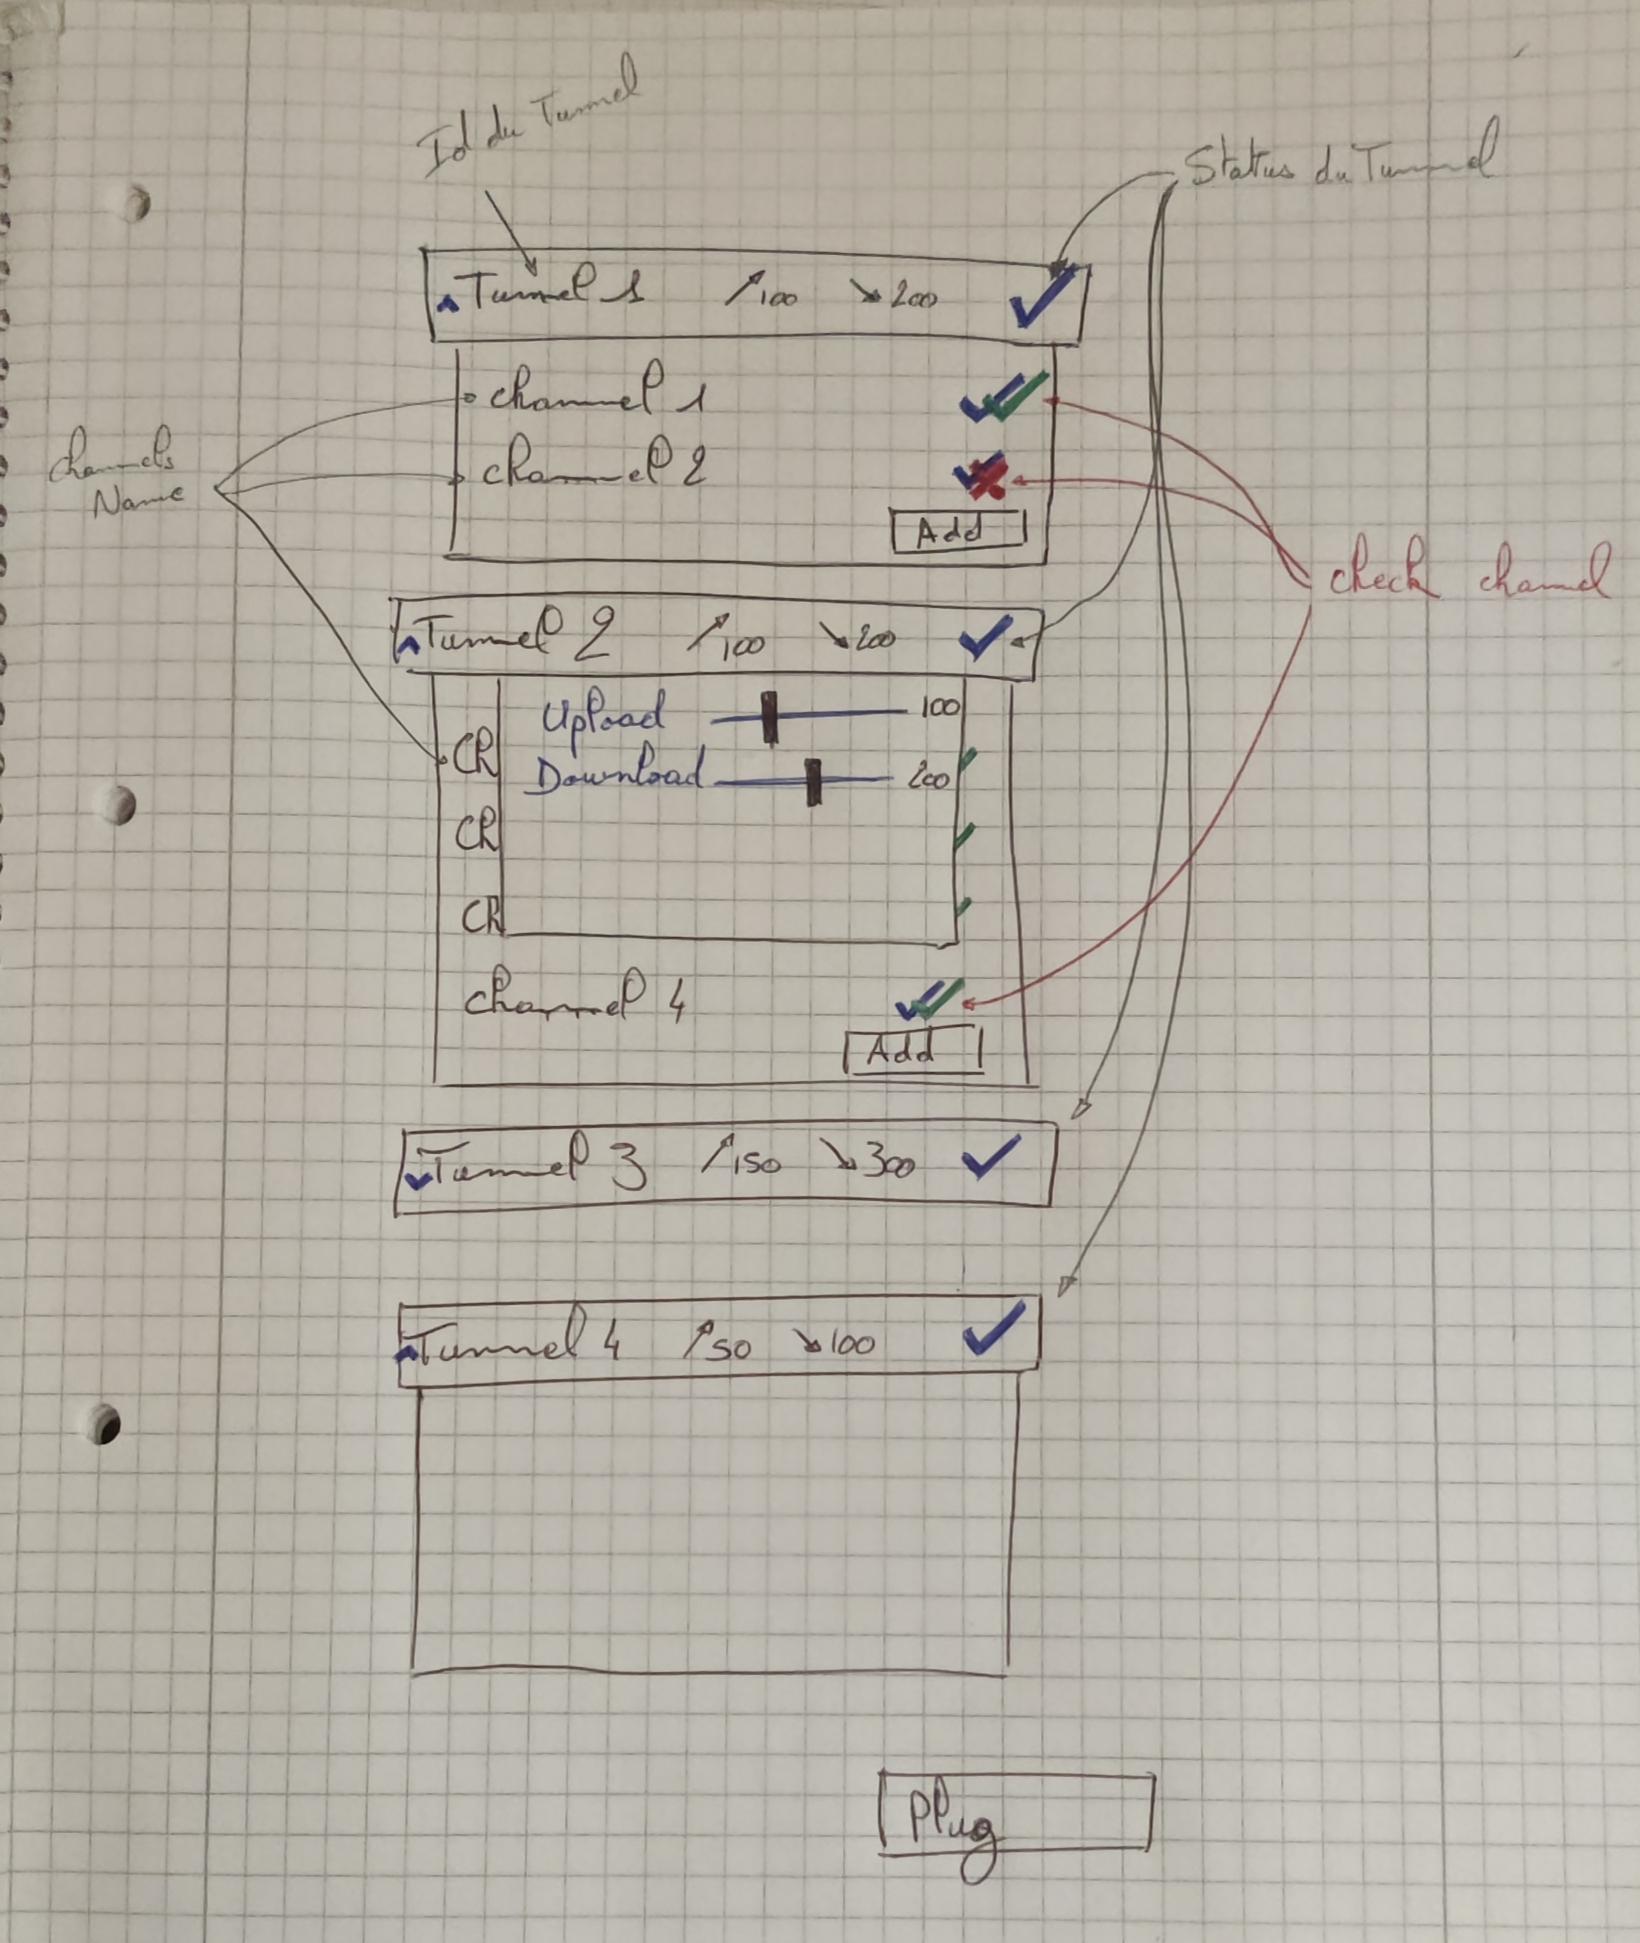 Id du Tunnel
Status du Tunnel
Tunnel 1 ↗100 ↘200 ✓
channel 1 ✓✓
channels
Name
channel 2 ✓✗
Add
check channel
Tunnel 2 ↗100 ↘200 ✓
Upload 100
Ch
Download 200
Ch
Ch
channel 4 ✓✓
Add
Tunnel 3 ↗150 ↘300 ✓
Tunnel 4 ↗50 ↘100 ✓
Plug